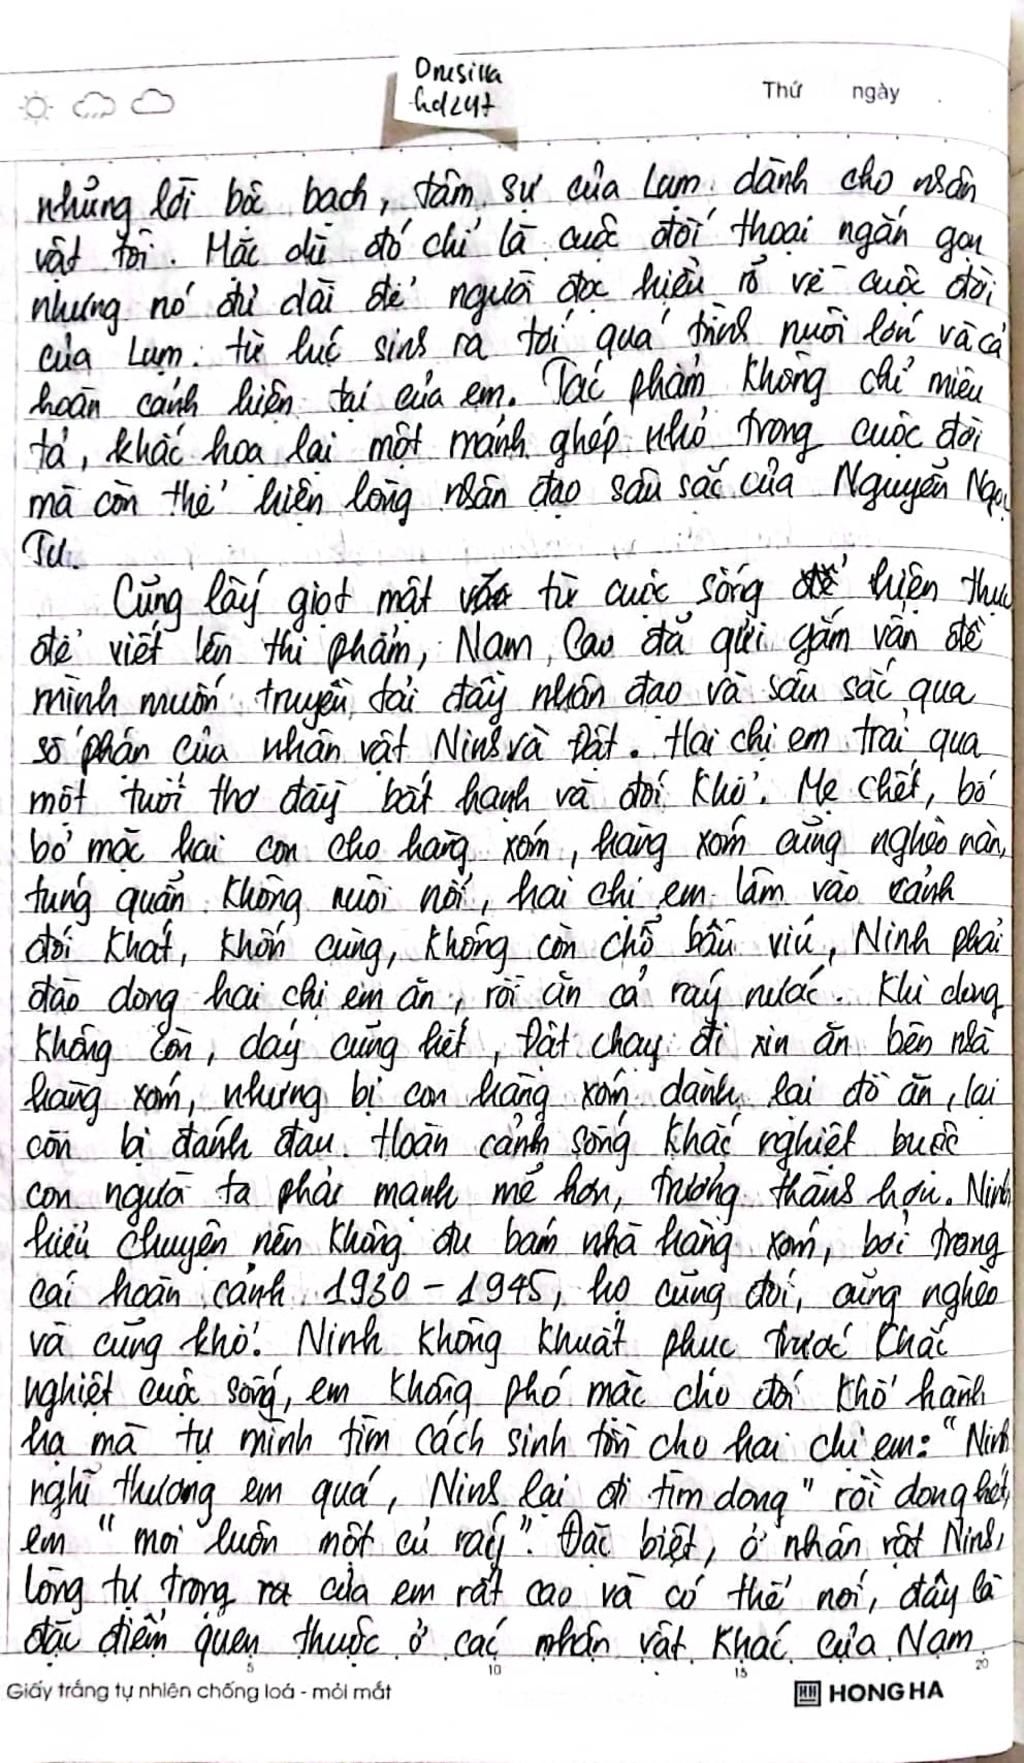 Onesilla
hd247
Thứ ngày
những lời bộc bạch, tâm sự của Lụm dành cho nhân
vật tôi. Mặc dù đó chỉ là cuộc đối thoại ngắn gọn
nhưng nó đủ dài để người đọc hiểu rõ về cuộc đời
của Lụm: từ lúc sinh ra tới quá trình nuôi lớn và cả
hoàn cảnh hiện tại của em. Tác phẩm không chỉ miêu
tả, khắc họa lại một mảnh ghép nhỏ trong cuộc đời
mà còn thể hiện lòng nhân đạo sâu sắc của Nguyễn Ngọc
Tư.
Cũng lấy giọt mật từ cuộc sống hiện thực
để viết lên thi phẩm, Nam Cao đã gửi gắm vấn đề
mình muốn truyền tải đầy nhân đạo và sâu sắc qua
số phận của nhân vật Ninh và Đật. Hai chị em trải qua
một tuổi thơ đầy bất hạnh và đói khổ. Mẹ chết, bố
bỏ mặc hai con cho hàng xóm, hàng xóm cũng nghèo nàn,
túng quẫn không nuôi nổi, hai chị em lâm vào cảnh
đói khát, khốn cùng, không còn chỗ bấu víu, Ninh phải
đào dong hai chị em ăn, rồi ăn cả ráy nước. Khi dong
không còn, dáy cũng hết, Đật chạy đi xin ăn bên nhà
hàng xóm, nhưng bị con hàng xóm dành lại đồ ăn, lại
còn bị đánh đau. Hoàn cảnh sống khắc nghiệt buộc
con người ta phải mạnh mẽ hơn, trưởng thành hơn. Ninh
hiểu chuyện nên không đu bám nhà hàng xóm, bởi trong
cái hoàn cảnh 1930 - 1945, họ cũng đói, cũng nghèo
và cũng khổ. Ninh không khuất phục trước khắc
nghiệt cuộc sống, em không phó mặc cho đói khổ hành
hạ mà tự mình tìm cách sinh tồn cho hai chị em: "Ninh
nghĩ thương em quá, Ninh lại đi tìm dong" rồi dong hết,
em "moi luôn một củ ráy". Đặc biệt, ở nhân vật Ninh,
lòng tự trọng của em rất cao và có thể nói, đây là
đặc điểm quen thuộc ở các nhân vật khác của Nam
5 10 15 20
Giấy trắng tự nhiên chống loá - mỏi mắt HH HONG HA